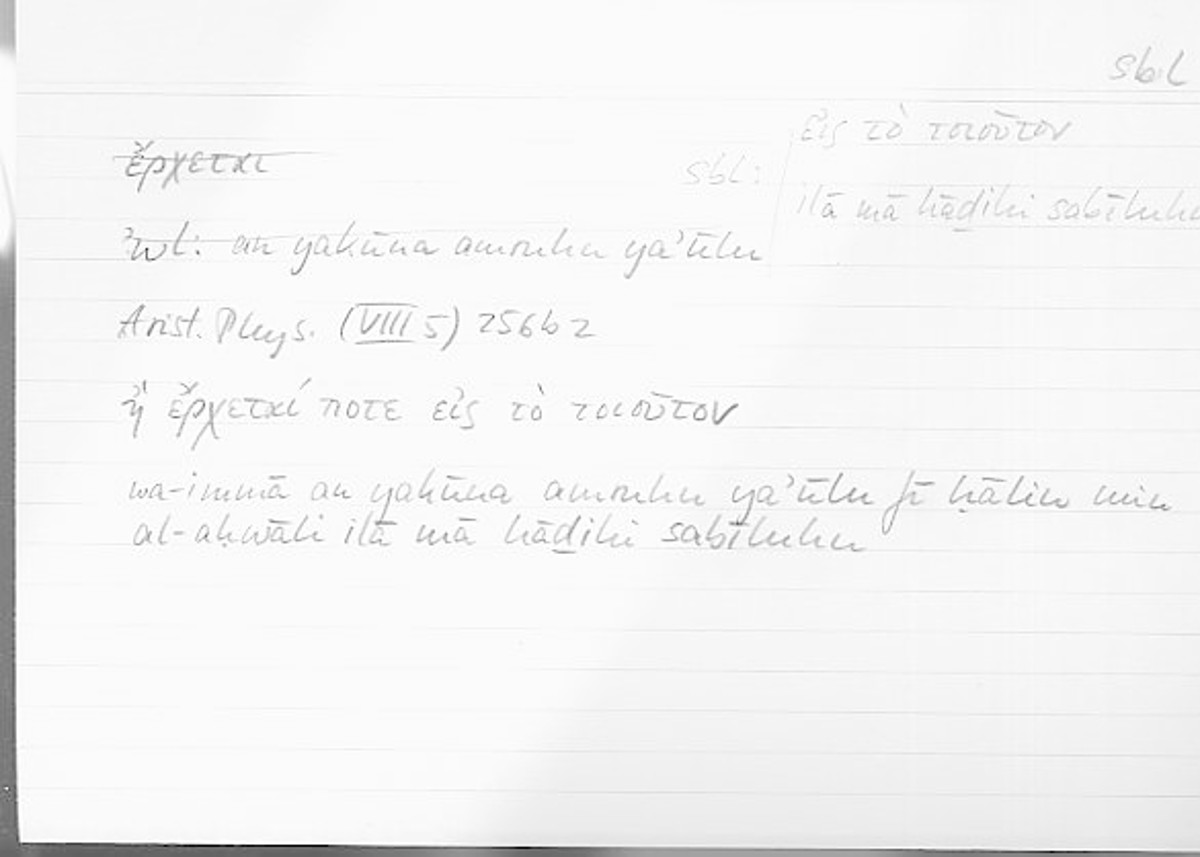 sbl
ἔρχεται
εἰς τὸ τοιοῦτον
sbl:
ilā mā hāḏihi sabīluhu
ʾwl: an yakūna amruhu yaʾūlu
Arist. Phys. (VIII 5) 256b2
ἢ ἔρχεταί ποτε εἰς τὸ τοιοῦτον
wa-immā an yakūna amruhu yaʾūlu fī ḥālin min
al-aḥwāli ilā mā hāḏihi sabīluhu